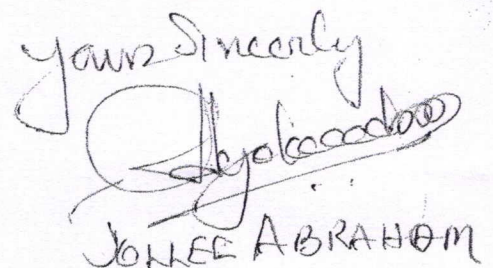 Yours Sincerly
JOLLEE ABRAHAM